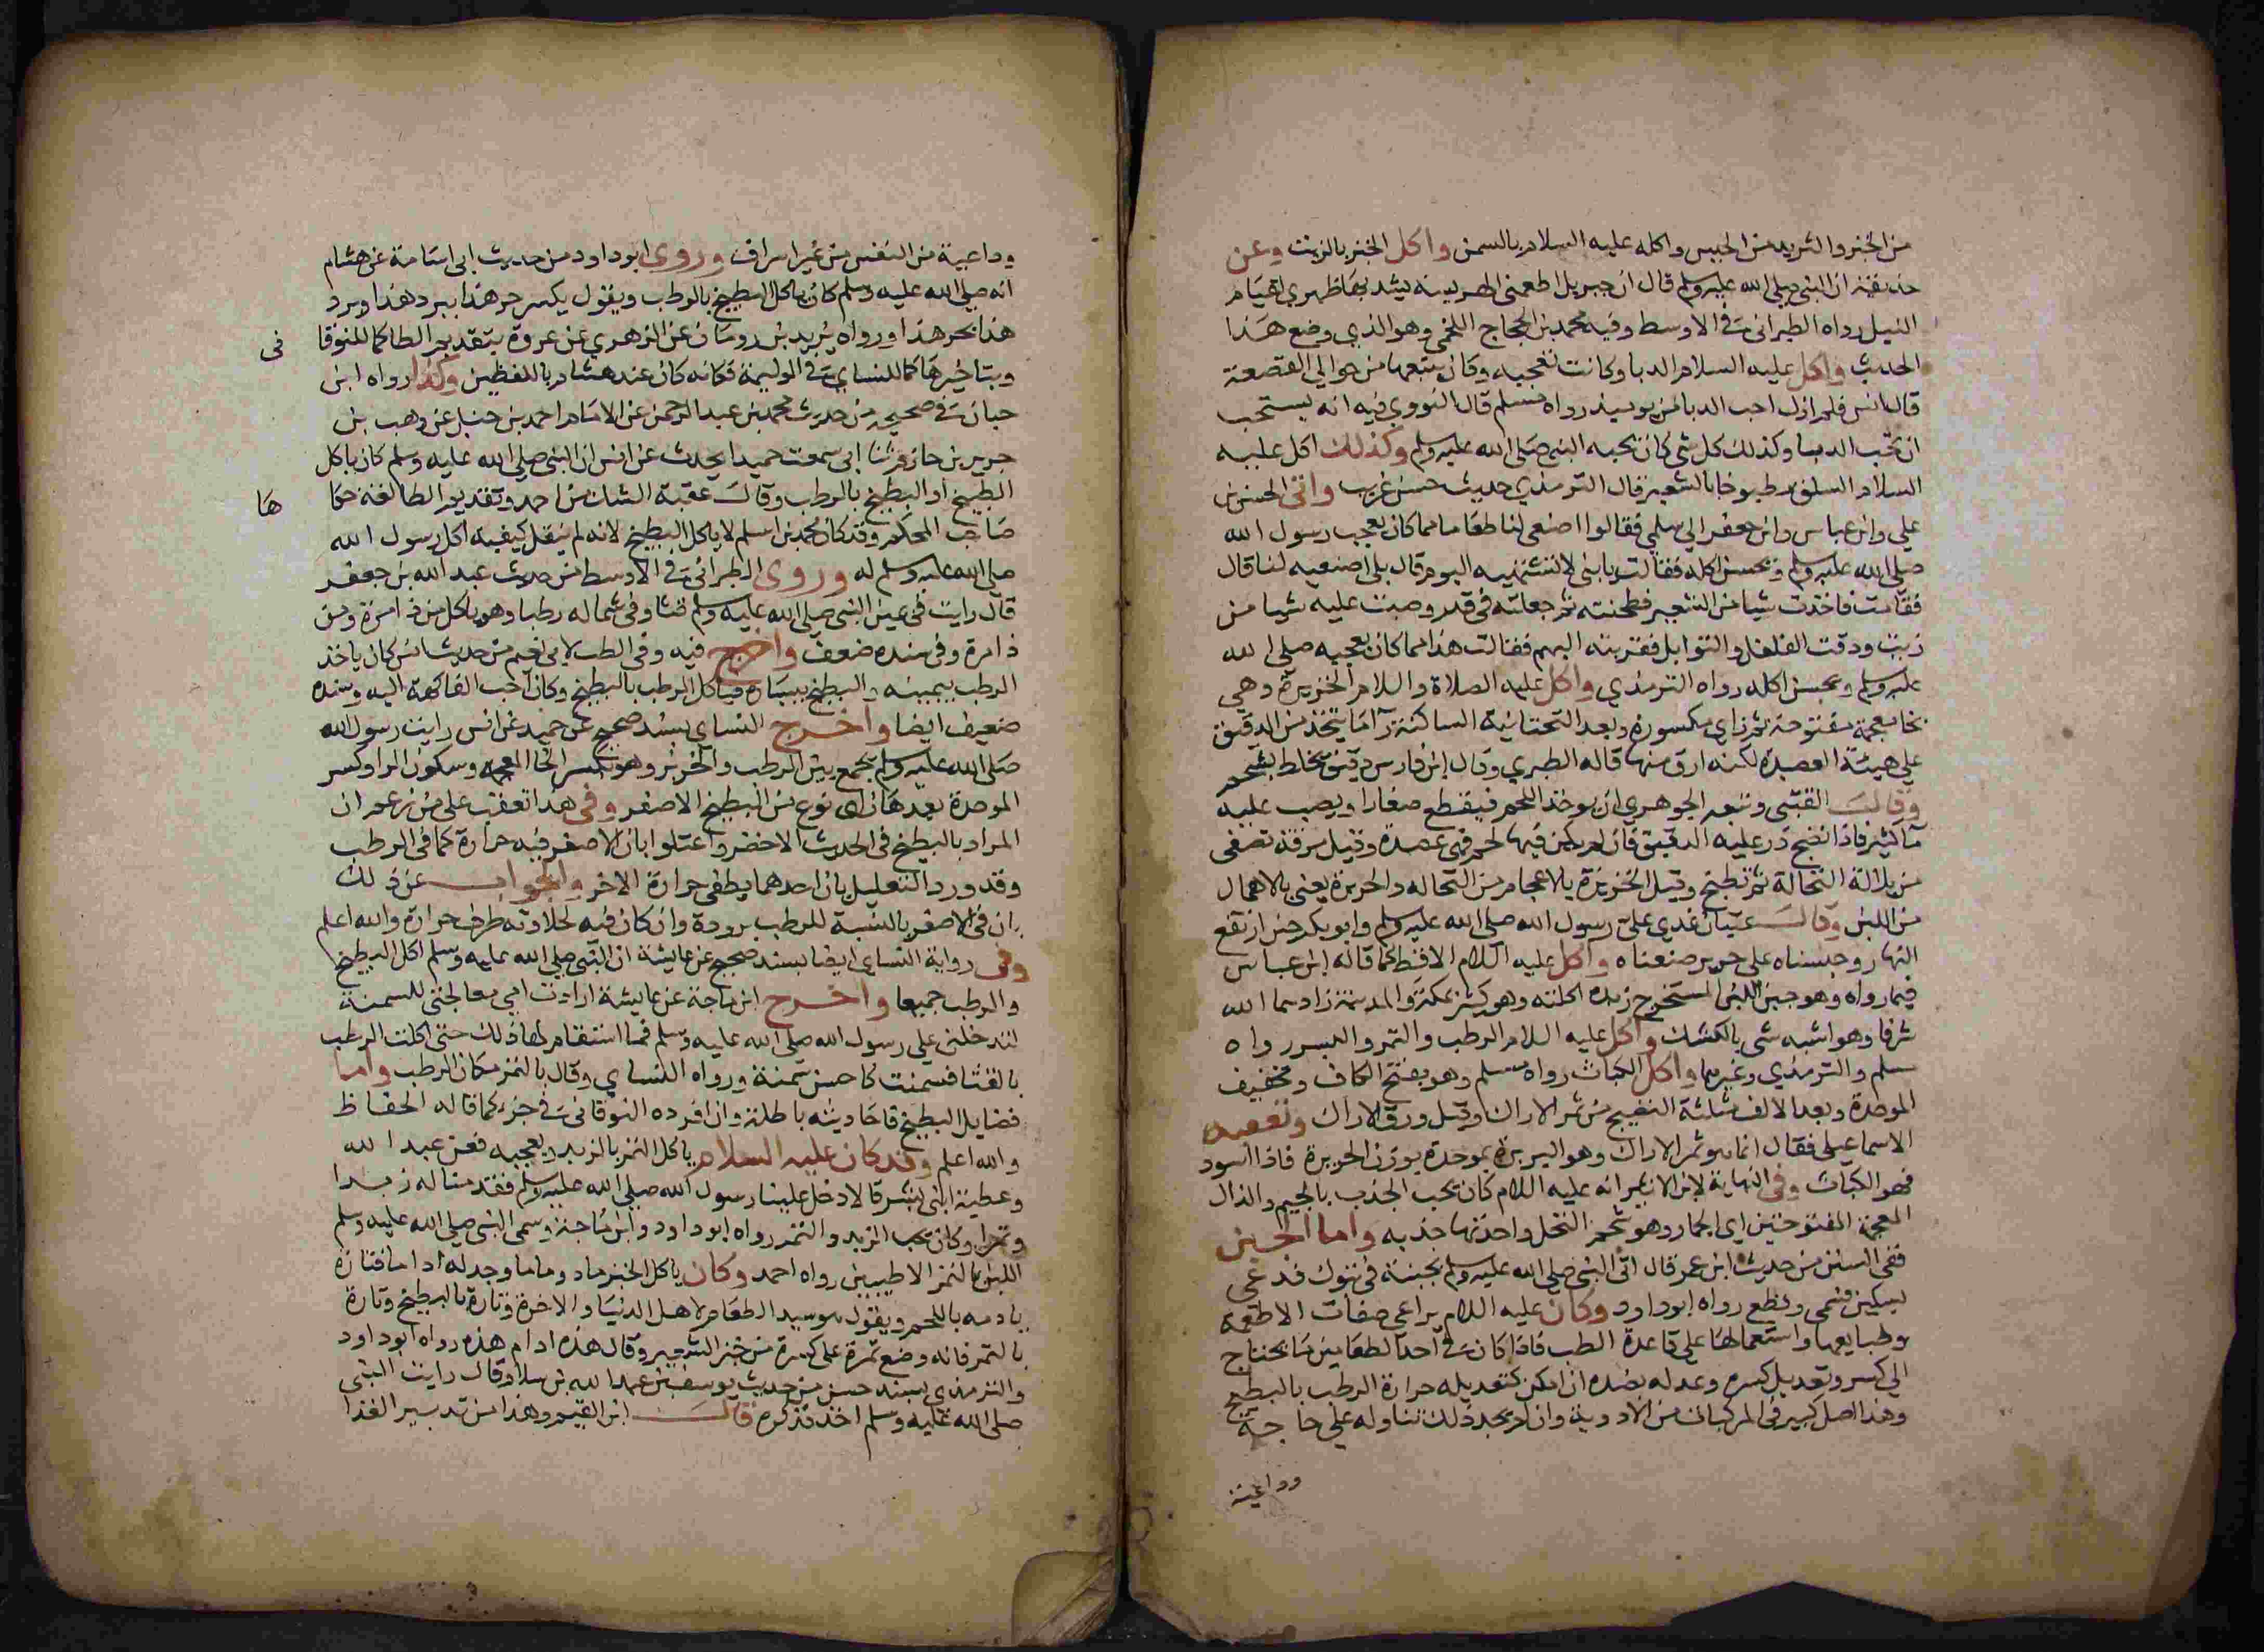 من الخبز والثريد من الحيس واكله عليه السلام بالسمن واكل الخبز بالزيت وعن
حذيفة ان النبي صلى الله عليه وسلم قال ان جبريل اطعمني الهريسة يشد بها ظهري لقيام
الليل رواه الطبراني في الاوسط وفيه محمد بن الحجاج اللخمي وهو الذي وضع هذا
الحديث واكل عليه السلام الدبا وكانت تعجبه وكان يتتبعها من حوالي القصعة
قال انس فلم ازل احب الدبا من يوميذ رواه مسلم قال النووي فيه انه يستحب
ان تحب الدبا وكذلك كل شي كان يحبه النبي صلى الله عليه وسلم وكذلك اكل عليه
السلام السلق مطبوخا بالشعير قال الترمذي حديث حسن غريب واتى الحسن بن
علي وابن عباس وابن جعفر الي سلمي فقالوا اصنعي لنا طعاما مما كان يعجب رسول الله
صلى الله عليه وسلم ويحسن اكله فقالت يا بني لا تشتهيه اليوم قال بلى اصنعيه لنا قال
فقامت فاخذت شيا من الشعير فطحنته ثم جعلته في قدر وصبت عليه شيا من
زيت ودقت الفلفل والتوابل فقربته اليهم فقالت هذا مما كان يعجبه صلى الله
عليه وسلم ويحسن اكله رواه الترمذي واكل عليه الصلاة والسلام الخزيرة وهي
بخا معجمة مفتوحة ثم زاي مكسورة وبعد التحتانية الساكنة را ما يتخذ من الدقيق
على هيئة العصيدة لكنه ارق منها قاله الطبري وقال ابن فارس دقيق يخلط بشحم
وقال القتبي وتبعه الجوهري ان يوخذ اللحم فيقطع صغارا ويصب عليه
ما كثير فاذا نضج ذر عليه الدقيق فان لم يكن فيها لحم فهي عصيدة وقيل مرقة تصفى
من بلالة النخالة ثم تطبخ وقيل الخزيرة بالاعجام من النخاله والحريرة يعني بالاهمال
من اللبن وقال عتبان غدي علي رسول الله صلى الله عليه وسلم وابو بكر حين ارتفع
النهار وحبسناه على خزير صنعناه واكل عليه السلام الاقط كما قاله ابن عباس
فيما رواه وهو جبن اللبن المستخرج زبده اكلته وهو كثير بمكة والمدينة زادهما الله
شرفا وهو اشبه شي بالكشك واكل عليه السلام الرطب والتمر والبسر رواه
مسلم والترمذي وغيرهما واكل الكباث رواه مسلم وهو بفتح الكاف وتخفيف
الموحدة وبعد الالف مثلثة النضيج من ثمر الاراك وقيل ورق الاراك وتعقبه
الاسماعيلي فقال انما هو ثمر الاراك وهو البربرة بموحدة بوزن الحريرة فاذا اسود
فهو الكباث وفي النهاية لابن الاثير انه عليه السلام كان يحب الجذب بالجيم والذال
المعجمة المفتوحتين اي الجمار وهو شحم النخل واحدتها جذبه واما الجبن
ففي السنن من حديث ابن عمر قال اتى النبي صلى الله عليه وسلم بجبنة في تبوك فدعى
بسكين فسمى وقطع رواه ابو داود وكان عليه السلام يراعي صفات الاطعمة
وطبايعها واستعمالها على قاعدة الطب فاذا كان في احد الطعامين ما يحتاج
الي كسر وتعديل كسره وعدله بضده ان امكن كتعديله حرارة الرطب بالبطيخ
وهذا اصل كبير في المركبات من الادوية وان لم يجد ذلك تناوله على حاجة
وداعية
وداعية من النفس من غير اسراف وروى ابو داود من حديث ابي اسامة عن هشام
انه صلى الله عليه وسلم كان ياكل البطيخ بالرطب ويقول يكسر حر هذا ببرد هذا وبرد
هذا بحر هذا ورواه يزيد بن رومان عن الزهري عن عروة بتقديم الطا كما للنوقا
في
وبتاخيرها كما للنساي في الوليمة فكانه كان عند هشام باللفظين وكذا رواه ابن
حبان في صحيحه من حديث محمد بن عبد الرحمن عن الامام احمد بن حنبل عن وهب بن
جرير بن حازم ثنا ابي سمعت حميدا يحدث عن انس ان النبي صلى الله عليه وسلم كان ياكل
الطبيخ او البطيخ بالرطب وقال عقبة الشك من احمد وتقديم الطا لغة حكا
ها
صاحب المحكم وقد كان محمد بن اسلم لا ياكل البطيخ لانه لم ينقل كيفية اكل رسول الله
صلى الله عليه وسلم له وروى الطبراني في الاوسط من حديث عبد الله بن جعفر
قال رايت في يمين النبي صلى الله عليه وسلم قثا وفي شماله رطبا وهو ياكل من ذا مرة ومن
ذا مرة وفي سنده ضعف واخرج فيه وفي الطب لابي نعيم من حديث انس كان ياخذ
الرطب بيمينه والبطيخ بيساره فياكل الرطب بالبطيخ وكان احب الفاكهة اليه وسنده
ضعيف ايضا واخرج النساي بسند صحيح عن حميد عن انس رايت رسول الله
صلى الله عليه وسلم يجمع بين الرطب والخربز وهو بكسر الخا المعجمة وسكون الرا وكسر
الموحدة بعدها زاي نوع من البطيخ الاصفر وفي هذا تعقب على من زعم ان
المراد بالبطيخ في الحديث الاخضر واعتلوا بان الاصفر فيه حرارة كما في الرطب
وقد ورد التعليل بان احدهما يطفي حرارة الاخر والجواب عن ذلك
ان في الاصفر بالنسبة للرطب برودة وان كان فيه لحلاوته طرف حرارة والله اعلم
وفي رواية النساي ايضا بسند صحيح عن عايشة ان النبي صلى الله عليه وسلم اكل البطيخ
والرطب جميعا واخرج ابن ماجة عن عايشة ارادت امي معالجتي للسمنة
لتدخلني على رسول الله صلى الله عليه وسلم فما استقام لها ذلك حتى اكلت الرطب
بالقثا فسمنت كاحسن سمنة ورواه النساي وقال بالتمر مكان الرطب واما
فضايل البطيخ فاحاديثه باطلة وان افرده النوقاني في جزء كما قاله الحفاظ
والله اعلم وقد كان عليه السلام ياكل التمر بالزبد ويعجبه فعن عبد الله
وعطية ابني بشر قالا دخل علينا رسول الله صلى الله عليه وسلم فقدمنا له زبدا
وتمرا وكان يحب الزبد والتمر رواه ابو داود وابن ماجة وسمى النبي صلى الله عليه وسلم
اللبن بالتمر الاطيبين رواه احمد وكان ياكل الخبز مادوما ما وجد له اداما فتارة
يادمه باللحم ويقول هو سيد الطعام لاهل الدنيا والاخرة وتارة بالبطيخ وتارة
بالتمر فانه وضع تمرة على كسرة من خبز الشعير وقال هذه ادام هذه رواه ابو داود
والترمذي بسند حسن من حديث يوسف بن عبد الله بن سلام قال رايت النبي
صلى الله عليه وسلم اخذ فذكره قال ابن القيم وهذا من تدبير الغذا